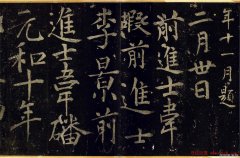 年十一月題
二月卅日
前進士韋
前進士
李景前
進士韋
元和十年